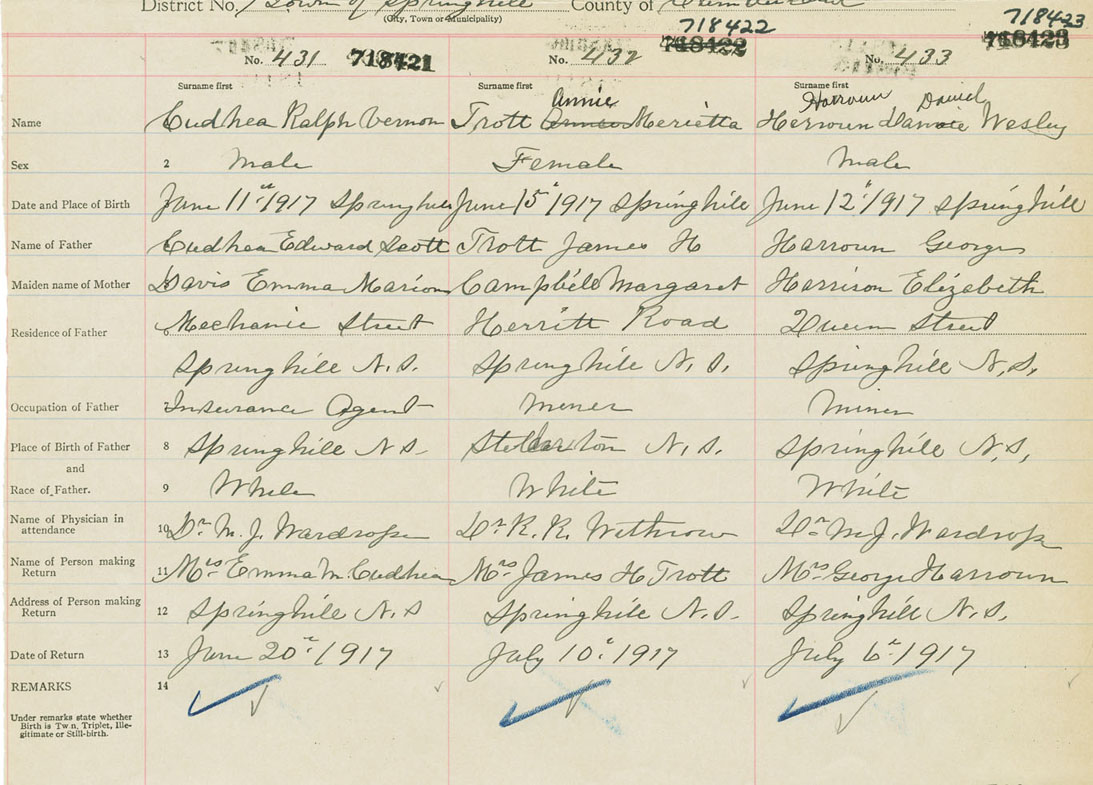 District No. 1 Town of Springhill County of Cumberland
(City, Town or Municipality)
718422 718423
No. 431 718421 No. 432 718422 No. 433 718423
Surname first Surname first Surname first
Annie Harroun Daniel
Name Cudhea Ralph Vernon Trott Merietta Herroun Wesley
Sex 2 Male Female Male
Date and Place of Birth June 11th 1917 Springhill June 15th 1917 Springhill June 12th 1917 Springhill
Name of Father Cudhea Edward Scott Trott James H Harroun George
Maiden name of Mother Davis Emma Marion Campbell Margaret Harrison Elizabeth
Residence of Father 6 Mechanic Street Herritt Road Queen Street
Springhill N.S. Springhill N.S. Springhill N.S.
Occupation of Father 7 Insurance Agent Miner Miner
Place of Birth of Father 8 Springhill N.S. Stellarton N.S. Springhill N.S.
and
Race of Father. 9 White White White
Name of Physician in
attendance 10 Dr M. J. Wardrope Dr K. K. Withrow Dr M J. Wardrope
Name of Person making
Return 11 Mrs Emma M. Cudhea Mrs James H Trott Mrs George Harroun
Address of Person making
Return 12 Springhill N.S Springhill N.S. Springhill N.S.
Date of Return 13 June 20th 1917 July 10th 1917 July 6th 1917
REMARKS 14
Under remarks state whether
Birth is Twin, Triplet, Ille-
gitimate or Still-birth.